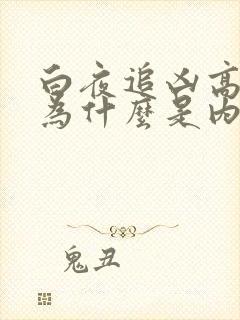 白夜追凶高
為什麼是内
鬼丑